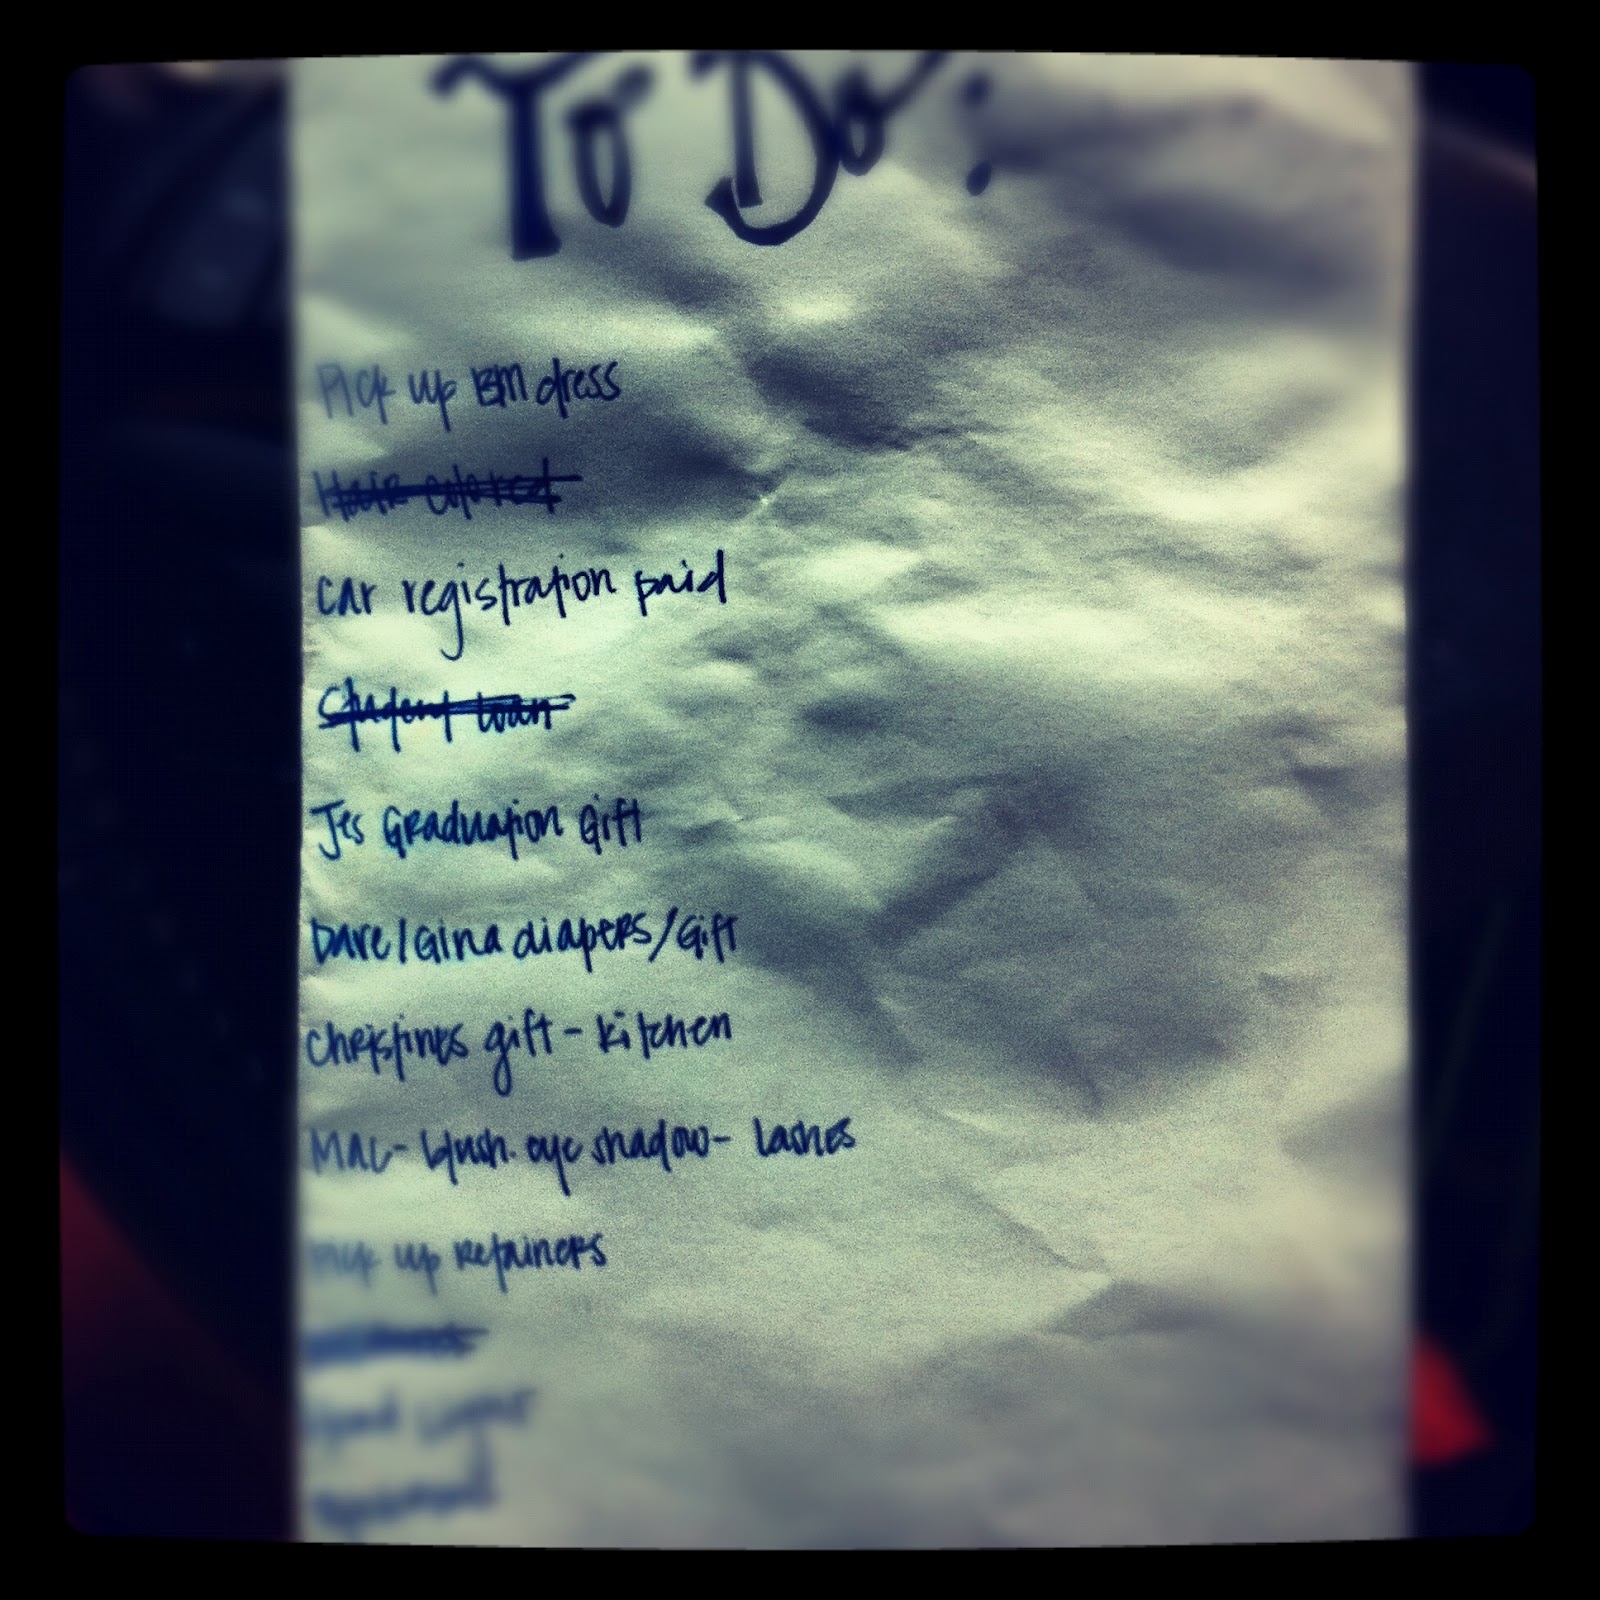 To Do:
Pick up BM dress
Hair colored
Car registration paid
Student loan
Jes Graduation Gift
Dave/Gina diapers/Gift
Christines gift - kitchen
MAC - blush. eye shadow - lashes
Pick up Retainers
Head Light